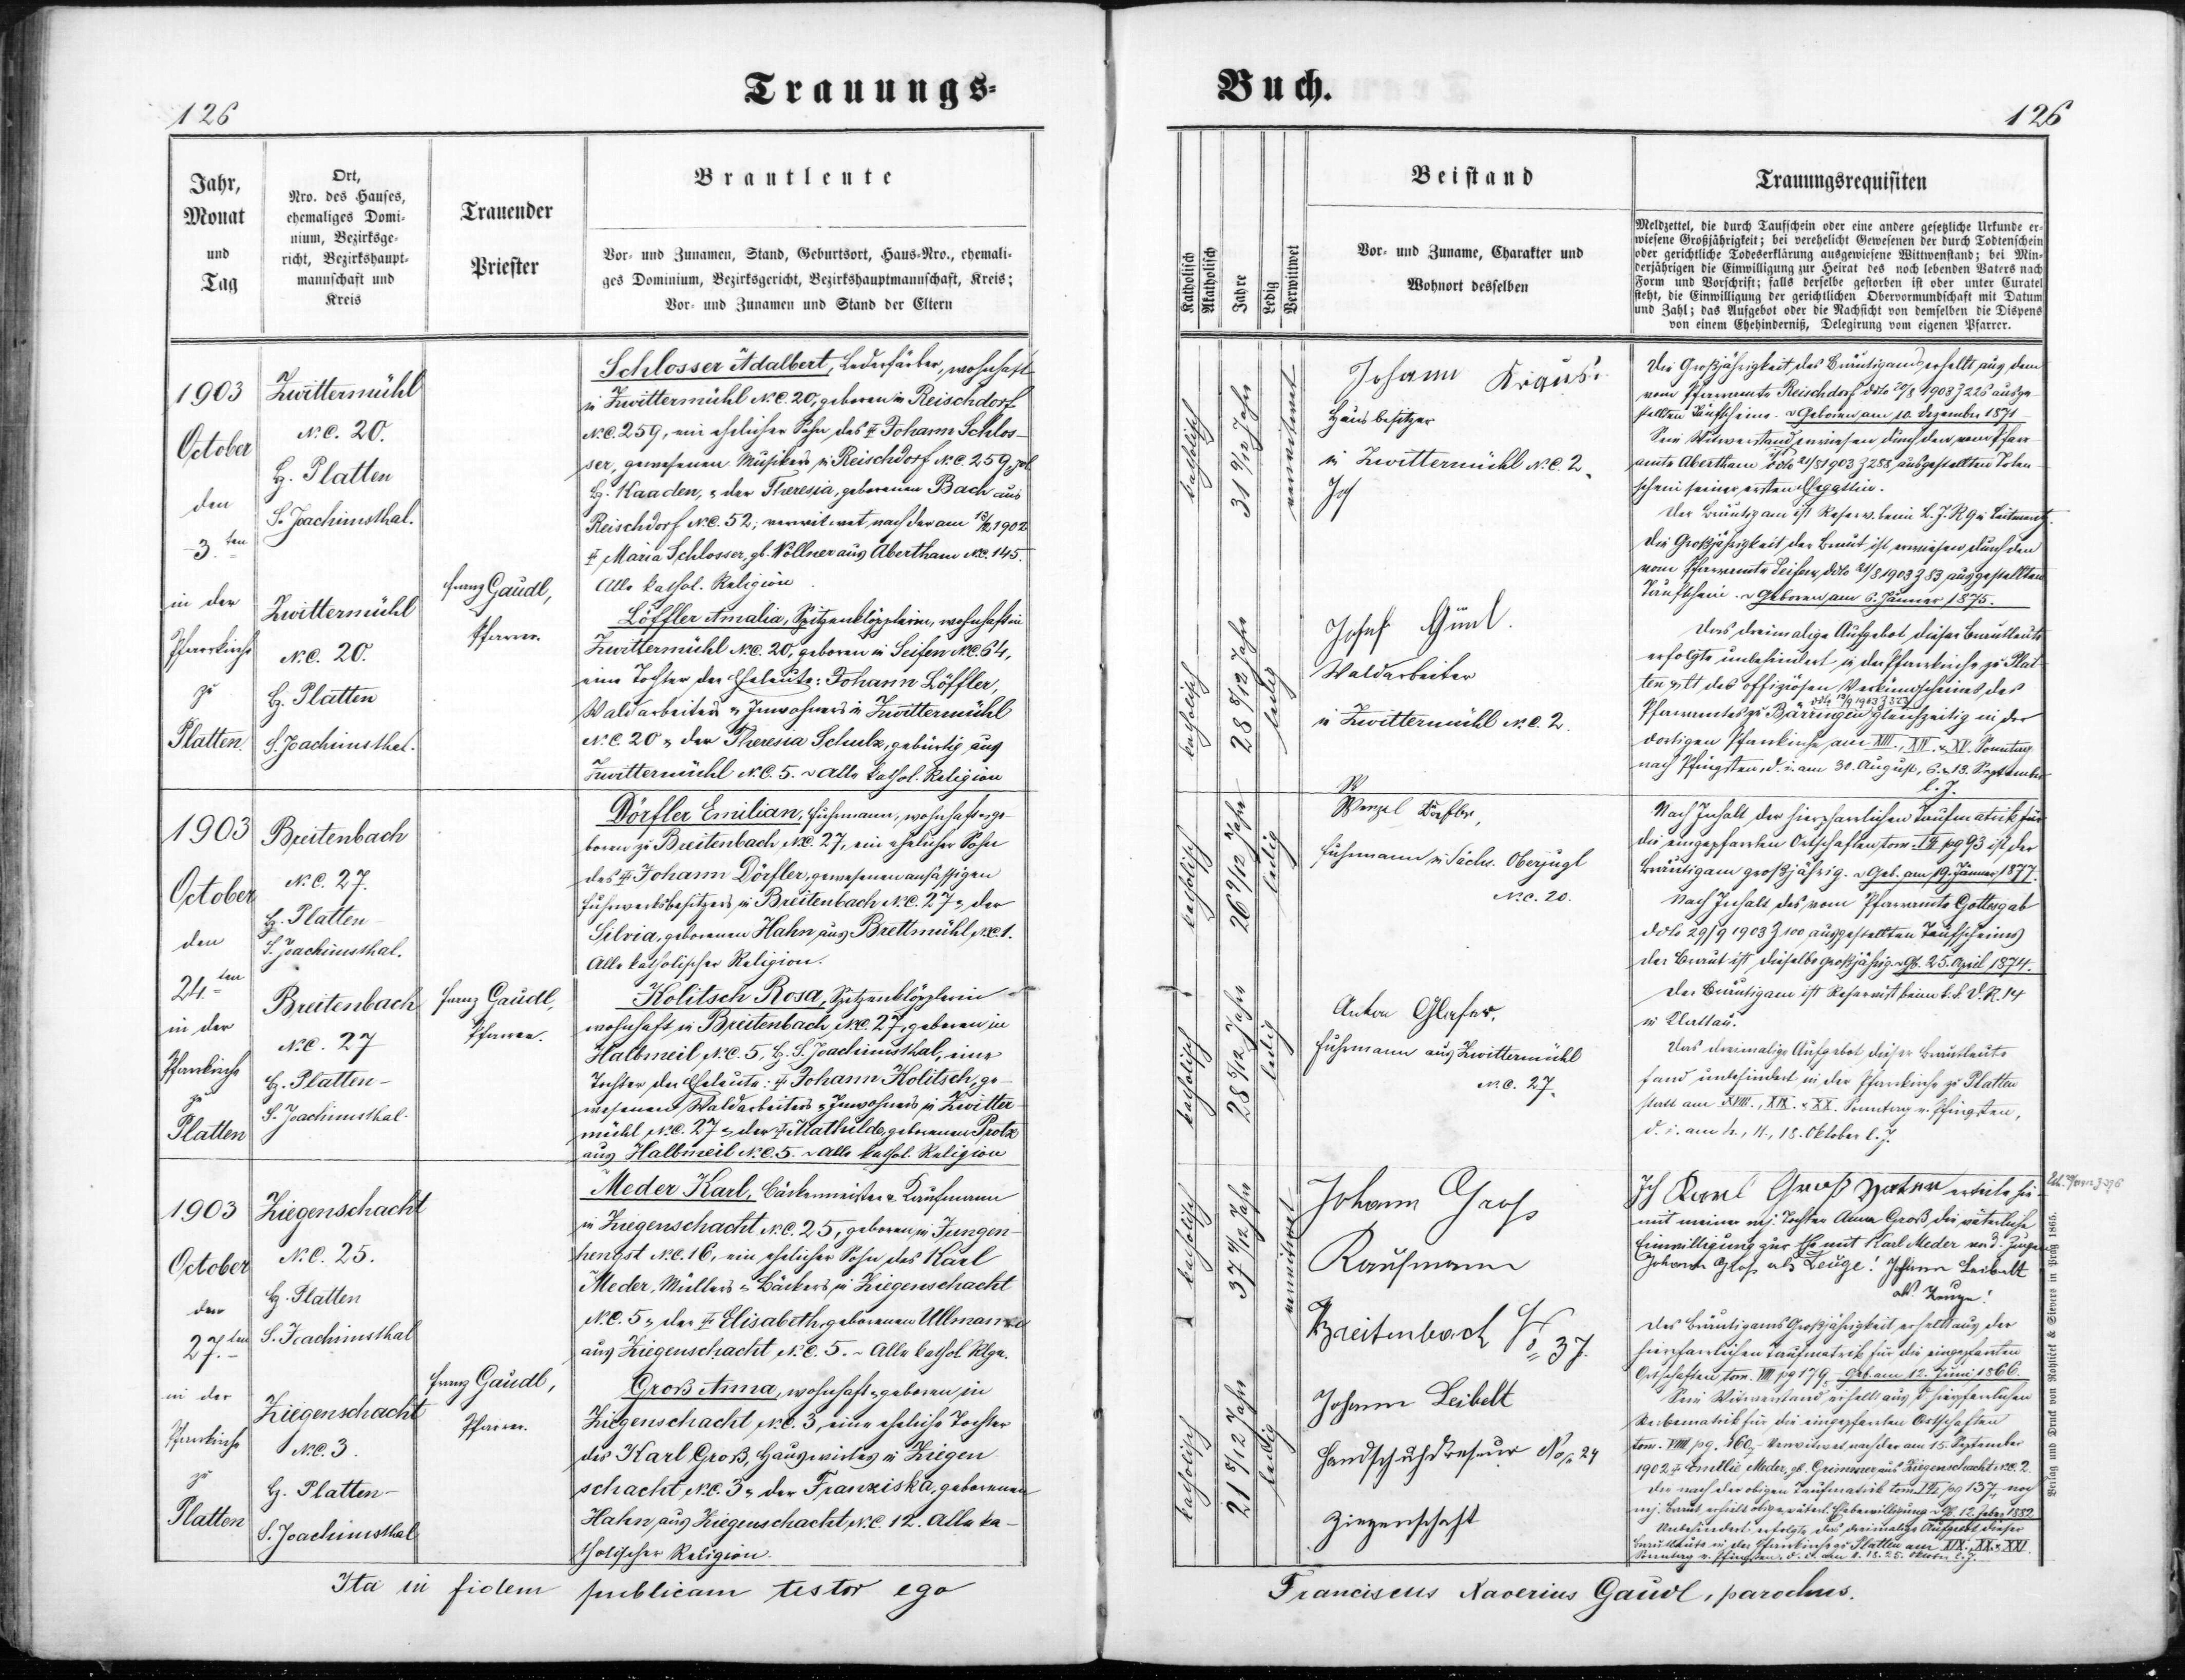 Trauungs-
Buch.
126
126
Jahr,
Monat
und
Tag
Ort,
Nro. des Hauses,
ehemaliges Domi-
nium, Bezirksge-
richt, Bezirkshaupt-
mannschaft und
Kreis
Trauender
Priester
Brautleute
Vor- und Zunamen, Stand, Geburtsort, Haus-Nro., ehemali-
ges Dominium, Bezirksgericht, Bezirkshauptmannschaft, Kreis;
Vor- und Zunamen und Stand der Eltern
Katholisch
Akatholisch
Jahre
Ledig
Verwitwet
Beistand
Vor- und Zuname, Charakter und
Wohnort desselben
Trauungsrequisiten
Meldzettel, die durch Taufschein oder eine andere gesetzliche Urkunde er-
wiesene Großjährigkeit; bei verehelicht Gewesenen der durch Todtenschein
oder gerichtliche Todeserklärung ausgewiesene Wittwenstand; bei Min-
derjährigen die Einwilligung zur Heirat des noch lebenden Vaters nach
Form und Vorschrift; falls derselbe gestorben ist oder unter Curatel
steht, die Einwilligung der gerichtlichen Obervormundschaft mit Datum
und Zahl; das Aufgebot oder die Nachsicht von demselben die Dispens
von einem Ehehinderniß, Delegirung vom eigenen Pfarrer.
1903
October
den
3.ten
in der
Pfarrkirche
zu
Platten.
Zwittermühl
N.C. 20.
Bz. Platten
S. Joachimsthal.
Zwittermühl
N.C. 20.
Bz. Platten
S. Joachimsthal.
Franz Gaudl,
Pfarrer.
Schlosser Adalbert, Lederfärber, wohnhaft
in Zwittermühl N.C. 20, geboren in Reischdorf
N.C. 259, ein ehelicher Sohn des † Johann Schlos-
ser, gewesenen Musikers in Reischdorf N.C. 259, pol.
Bz. Kaaden, u. der Theresia, geborenen Bach aus
Reischdorf N.C. 52; verwitwet nach der am 1902
† Maria Schlosser, gb. Vollner aus Abertham N.C. 145.
Alle kathol. Religion
Löffler Amalia, Spitzenklöpplerin, wohnhaft in
Zwittermühl N.C. 20, geboren in Seifen N.C. 64,
eine Tochter der Eheleute: Johann Löffler,
Waldarbeiters u. Inwohners in Zwittermühl
N.C. 20 u. der Theresia Schulz, gebürtig aus
Zwittermühl N.C. 5. Alle kathol. Religion
katholisch
31 9/12 Jahr
verwitwet
katholisch
28 8/12 Jahr
ledig
Johann Kraus
Hausbesitzer
in Zwittermühl N.C. 2
Josef Günl.
Waldarbeiter
in Zwittermühl N.C. 2.
Die Großjährigkeit des Bräutigams erhellt aus dem
vom Pfarramte Reischdorf ddto 20/8 1903 Z 226 ausge-
stellten Taufscheine. Geboren am 10. Dezember 1871
Sein Witwerstand erwiesen durch den vom Pfarr-
amte Abertham ddto 21/8 1903 Z 288 ausgestellten Toten-
schein seiner ersten Ehegattin.
Der Bräutigam ist Reserv. beim L. J. R 9 in Leitmeritz.
Die Großjährigkeit der Braut ist erwiesen durch den
vom Pfarramte Seifen ddto 21/8 1903 Z 83 ausgestellten
Taufschein. Geboren am 6. Jänner 1875.
Das dreimalige Aufgebot dieser Brautleute
erfolgte unbehindert in der Pfarrkirche zu Plat-
ten u. lt des offiziösen Verkündscheines des
Pfarramtes zu Bäringen gleichzeitig in der
dortigen Pfarrkirche am XIII., XIV. u. XV. Sonntag
nach Pfingsten, d. i. am 30. August, 6. u. 13. September
l. J.
1903
October
den
24.ten
in der
Pfarrkirche
zu
Platten
Breitenbach
N.C. 27.
Bz. Platten
S. Joachimsthal.
Breitenbach
N.C. 27
Bz. Platten
S. Joachimsthal.
Franz Gaudl,
Pfarrer.
Dörfler Emilian, Fuhrmann, wohnhaft u. ge-
boren zu Breitenbach N.C. 27, ein ehelicher Sohn
des † Johann Dörfler, gewesenen ansässigen
Fuhrwerksbesitzers in Breitenbach N.C. 27 u. der
Silvia, geborenen Hahn aus Brettmühl N.C. 1.
Alle katholischer Religion.
Kolitsch Rosa, Spitzenklöpplerin
wohnhaft in Breitenbach N.C. 27, geboren in
Halbmeil N.C. 5, Bz. S. Joachimsthal, eine
Tochter der Eheleute: † Johann Kolitsch, ge-
wesenen Waldarbeiters u. Inwohners in Zwitter-
mühl N.C. 27 u. der † Mathilde, geborenen Protz
aus Halbmeil N.C. 5. Alle kathol. Religion
katholisch
26 9/12 Jahr
ledig
katholisch
28 5/12 Jahr
ledig
Wenzel Dörfler,
Fuhrmann in Sächs. Oberjugl
N.C. 20.
Anton Glaser,
Fuhrmann aus Zwittermühl
N.C. 27.
Nach Inhalt der hierpfarrlichen Taufmatrik für
die eingepfarrten Ortschaften tom. IX pg 93 ist der
Bräutigam großjährig. Geb. am 19. Jänner 1877.
Nach Inhalt des vom Pfarramte Gottesgab
ddto 29/9 1903 Z 100 ausgestellten Taufscheines
der Braut ist dieselbe großjährig. Gb. 25. April 1874.
Der Bräutigam ist Reservist beim k. k. D. R. 14
in Klattau.
Das dreimalige Aufgebot dieser Brautleute
fand unbehindert in der Pfarrkirche zu Platten
statt am XVIII., XIX. u. XX. Sonntag n. Pfingsten,
d. i. am 4., 11., 18. Oktober l. J.
1903
October
den
27.ten
in der
Pfarrkirche
zu
Platten
Ziegenschacht
N.C. 25.
Bz. Platten
S. Joachimsthal
Ziegenschacht
N.C. 3.
Bz. Platten
S. Joachimsthal
Franz Gaudl,
Pfarrer.
Meder Karl, Bäckermeister u. Kaufmann
in Ziegenschacht N.C. 25, geboren in Jungen-
hengst N.C. 16, ein ehelicher Sohn des Karl
Meder, Müllers u. Bäckers in Ziegenschacht
N.C. 5 u. der † Elisabeth, geborenen Ullmann
aus Ziegenschacht N.C. 5. Alle kathol. Rlgn.
Groß Anna, wohnhaft u. geboren in
Ziegenschacht N.C. 3, eine eheliche Tochter
des Karl Groß, Hauswirtes in Ziegen-
schacht N.C. 3 u. der Franziska, geborenen
Hahn, aus Ziegenschacht N.C. 12. Alle ka-
tholischer Religion.
katholisch
37 4/12 Jahr
verwitwet
katholisch
21 8/12 Jahr
ledig
Johann Groß
Kaufmann
Breitenbach No 37.
Johann Leibelt
Handschuhdresseur No 24
Ziegenschacht
Ich Karl Groß Vater erteile hie-
mit meiner mj. Tochter Anna Groß die väterliche
Einwilligung zur Ehe mit Karl Meder
Johann Groß als Zeuge! Johann Leibelt
als Zeuge!
Des Bräutigams Großjährigkeit erhellt aus der
hierpfarrlichen Taufmatrik für die eingepfarrten
Ortschaften tom. VIII pg 179. Geb. am 12. Juni 1866.
Sein Witwerstand erhellt aus d. hierpfarrlichen
Sterbematrik für die eingepfarrten Ortschaften
tom. VIII pg. 160. Verwitwet nach der am 15. September
1902 † Emilie Meder, gb. Grimmer aus Ziegenschacht N.C. 2.
Die nach der obigen Taufmatrik tom. IX pg 137 noch
mj. Braut erhält obige väterl. Ehebewilligung. Gb. 12. Feber 1882.
Unbehindert erfolgte das dreimalige Aufgebot dieser
Brautleute in der Pfarrkirche zu Platten am XIX., XX. u. XXI.
Sonntag n. Pfingsten, d. i. am 11. 18. 25. Oktober l. J.
Verlag und Druck von Rohliček & Sievers in Prag 1865.
Ita in fidem publicam testor ego
Franciscus Xaverius Gaudl, parochus.